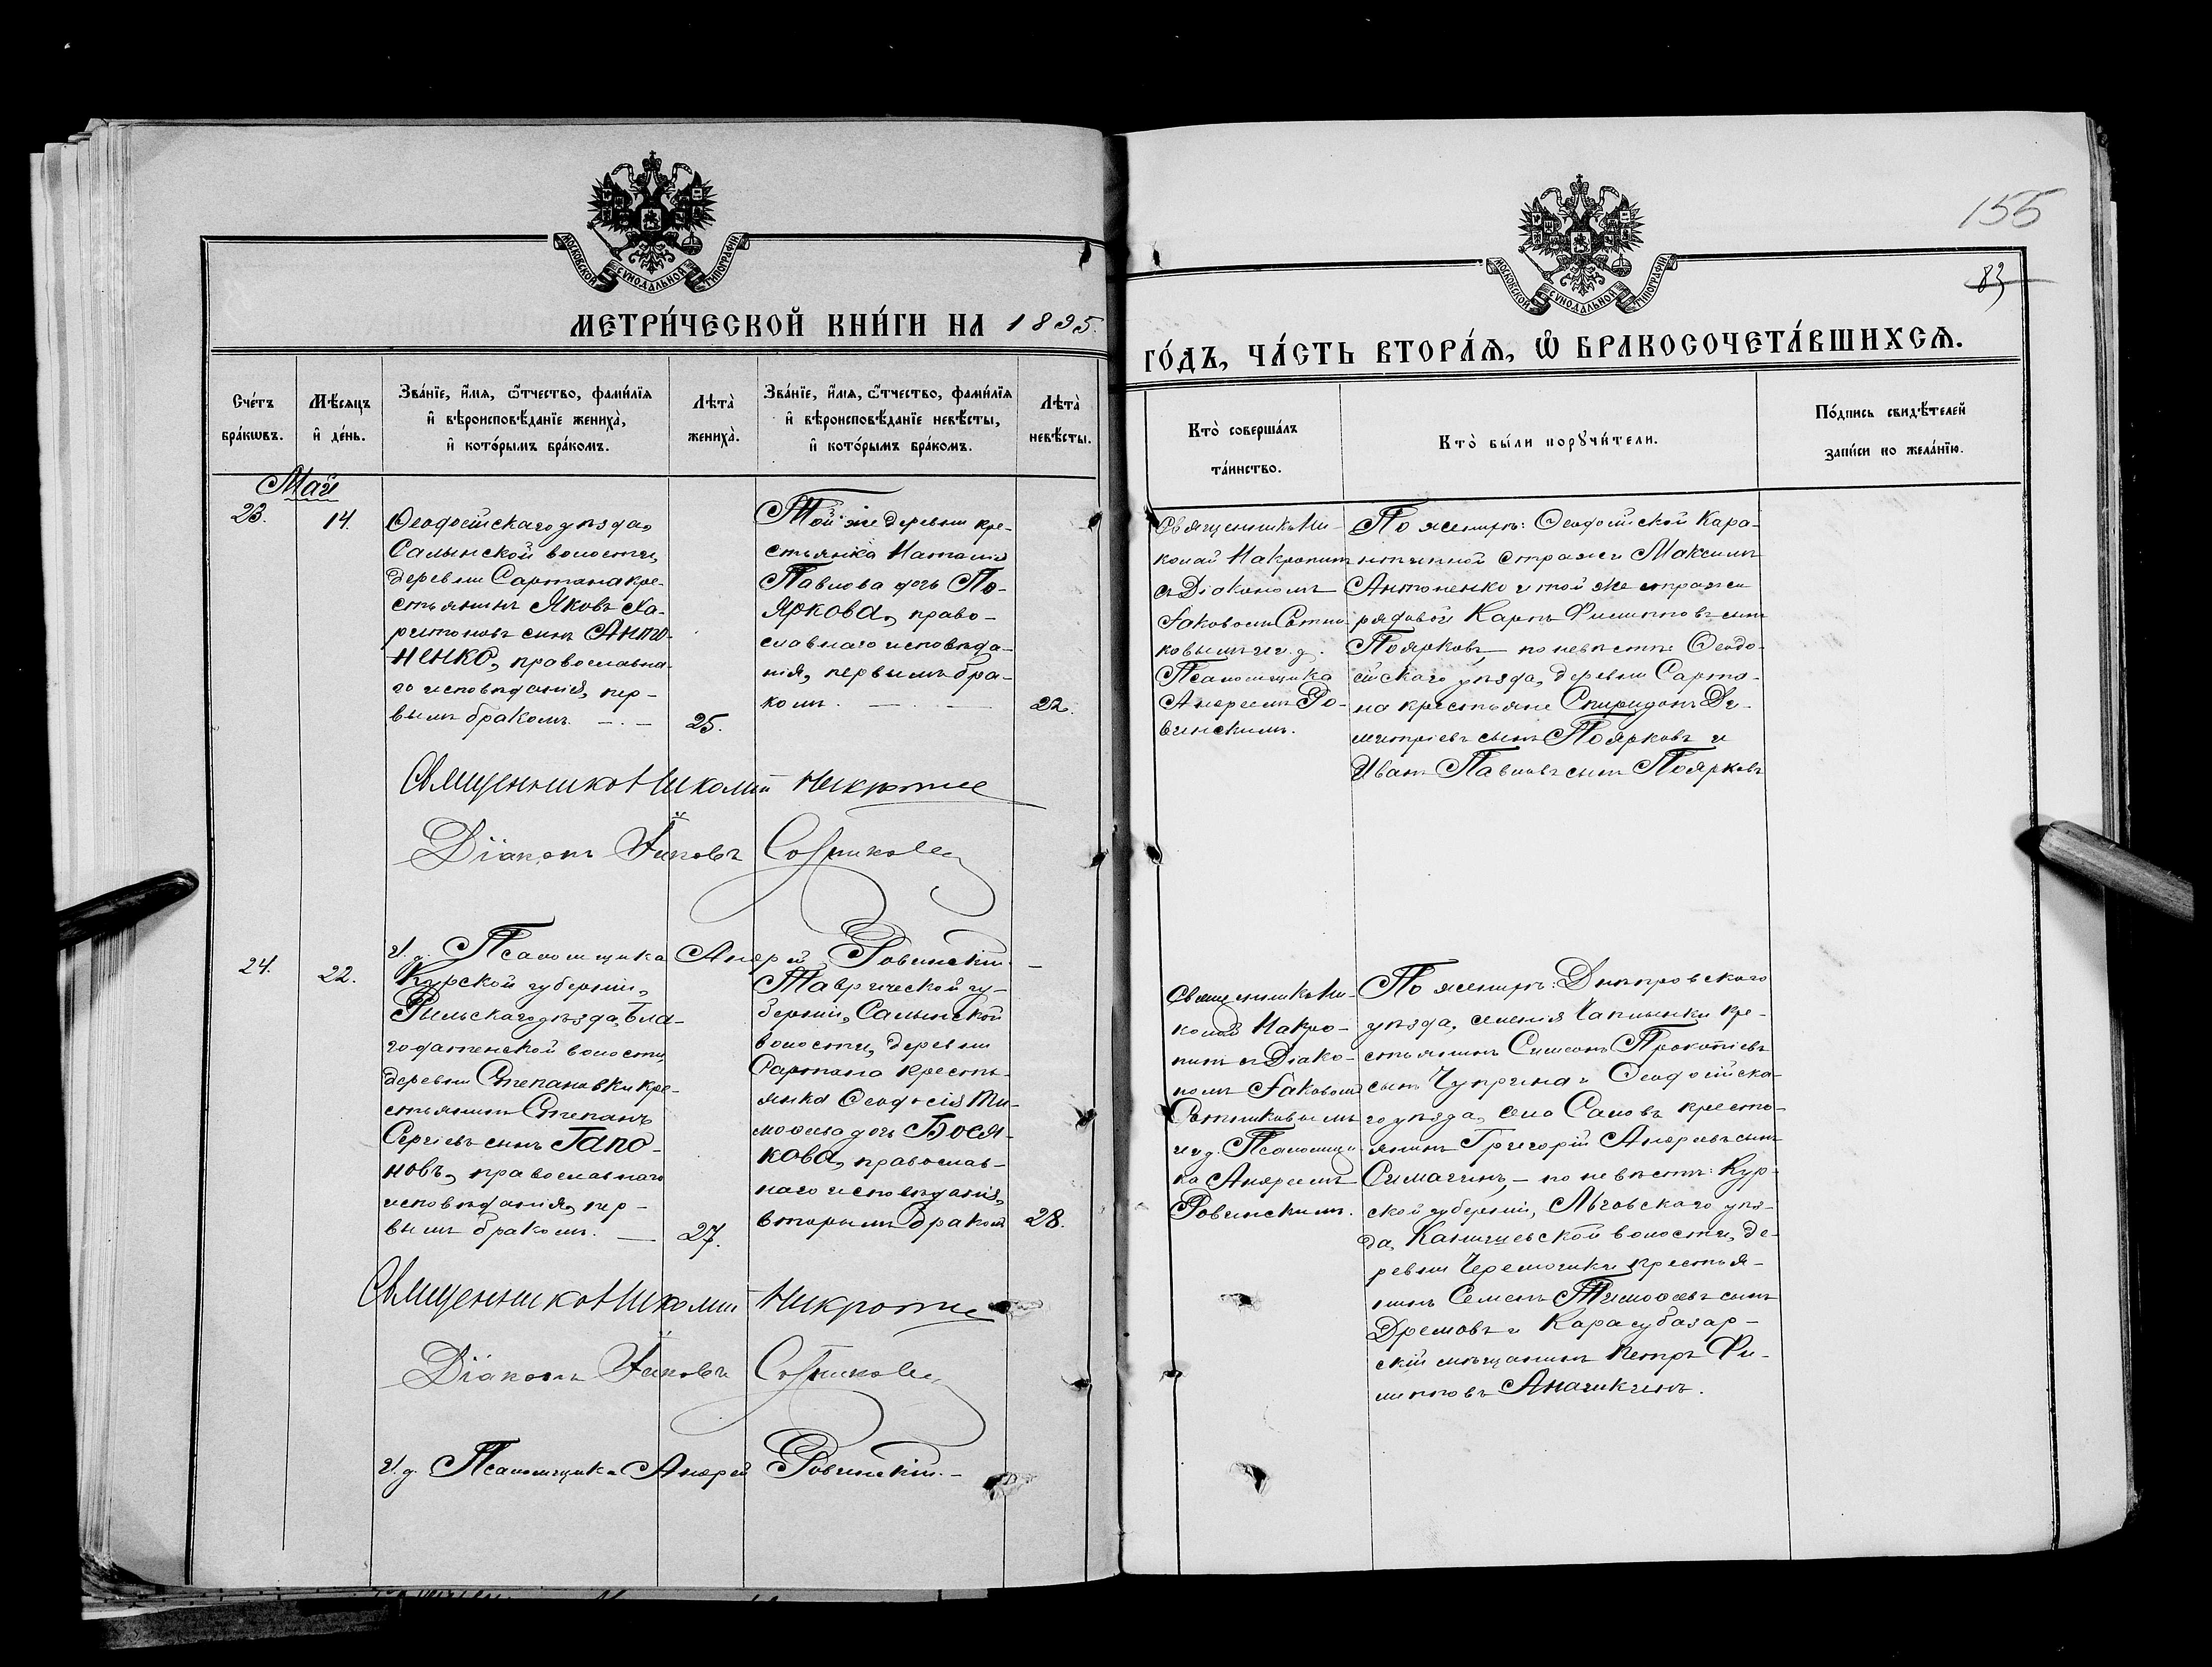 МОСКОВСКОЙ СѴНОДАЛЬНОЙ ТИПОГРАФІИ
МЕТРИ́ЧЕСКОЙ КНИ́ГИ НА 1895.
Сче́тъ
бра́кѡвъ.
Мѣ́сяцъ
и҆ де́нь.
Зва́нїе, и҆́мя, ѻ҆́тчество, фами́лїя
и҆ вѣроисповѣ́данїе жениха̀,
и҆ кото́рымъ бра́комъ.
Лѣта̀
жениха̀.
Зва́нїе, и҆́мя, ѻ҆́тчество, фами́лїя
и҆ вѣроисповѣ́данїе невѣ́сты,
и҆ кото́рымъ бра́комъ.
Лѣта̀
невѣ́сты.
Май
23.
14.
Ѳеодосійскаго уѣзда,
Салынской волости,
деревни Сартана кре-
стьянинъ Яковъ Ха-
ритоновъ сынъ Анто-
ненко, православна-
го исповѣданія, пер-
вымъ бракомъ. —.—
25.
Той-же деревни кре-
стьянка Наталія
Павлова дочь По-
яркова, право-
славнаго исповѣда-
нія, первымъ бра-
комъ. — . —
22.
Священникъ Николай
Діаконъ Іаковъ Сотниковъ
И. д. Псаломщика Андрей Ровинскій. —
24.
22.
Курской губерніи,
Рыльскаго уѣзда, Бла-
годатенской волости,
деревни Степановки кре-
стьянинъ Степанъ
Сергіевъ сынъ Гапо-
новъ, православнаго
исповѣданія, пер-
вымъ бракомъ. —
27.
Таврической гу-
берніи, Салынской
волости, деревни
Сартана кресть-
янка Ѳеодосія Ти-
моѳеева дочь Бося-
кова, православ-
наго исповѣданія,
вторымъ бракомъ
28.
Священникъ Николай
Діаконъ Іаковъ Сотниковъ
И. д. Псаломщика Андрей Ровинскій. —
155
83
МОСКОВСКОЙ СѴНОДАЛЬНОЙ ТИПОГРАФІИ
ГО́ДЪ, ЧА́СТЬ ВТОРА́Я, Ѽ БРАКОСОЧЕТА́ВШИХСЯ.
Кто̀ соверша́лъ
та́инство.
Кто̀ бы́ли порꙋчи́тели.
По́дпись свидѣ́телей
за́писи по жела́нїю.
Священникъ Ни-
колай
съ Діакономъ
Іаковомъ Сотни-
ковымъ и и. д.
Псаломщика
Андреемъ Ро-
винскимъ.
По женихѣ: Ѳеодосійской Кара-
нтинной стражи Максимъ
Антоненко и той же стражи
рядовой Карпъ Филипповъ сынъ
Поярковъ, — по невѣстѣ: Ѳеодо-
сійскаго уѣзда, деревни Сарта-
на крестьяне Спиридонъ Ди-
митріевъ сынъ Поярковъ и
Иванъ Павловъ сынъ Поярковъ
Священникъ Ни-
колай
съ Діако-
номъ Іаковомъ
Сотниковымъ
и и. д. Псаломщи-
ка Андреемъ
Ровинскимъ.
По женихѣ: Днѣпровскаго
уѣзда, селенія Чаплынки кре-
стьянинъ Симеонъ Прокопіевъ
сынъ Чуприна и Ѳеодосійска-
го уѣзда, село Саловъ кресть-
янинъ Григорій Андреевъ сынъ
Симагинъ, — по невѣстѣ: Кур-
ской губерніи, Льговскаго уѣз-
да, волости, де-
ревни Черемошки крестья-
нинъ Семенъ Тимоѳеевъ сынъ
Дремовъ и Карасубазар-
скій мѣщанинъ Петръ Фи-
липповъ